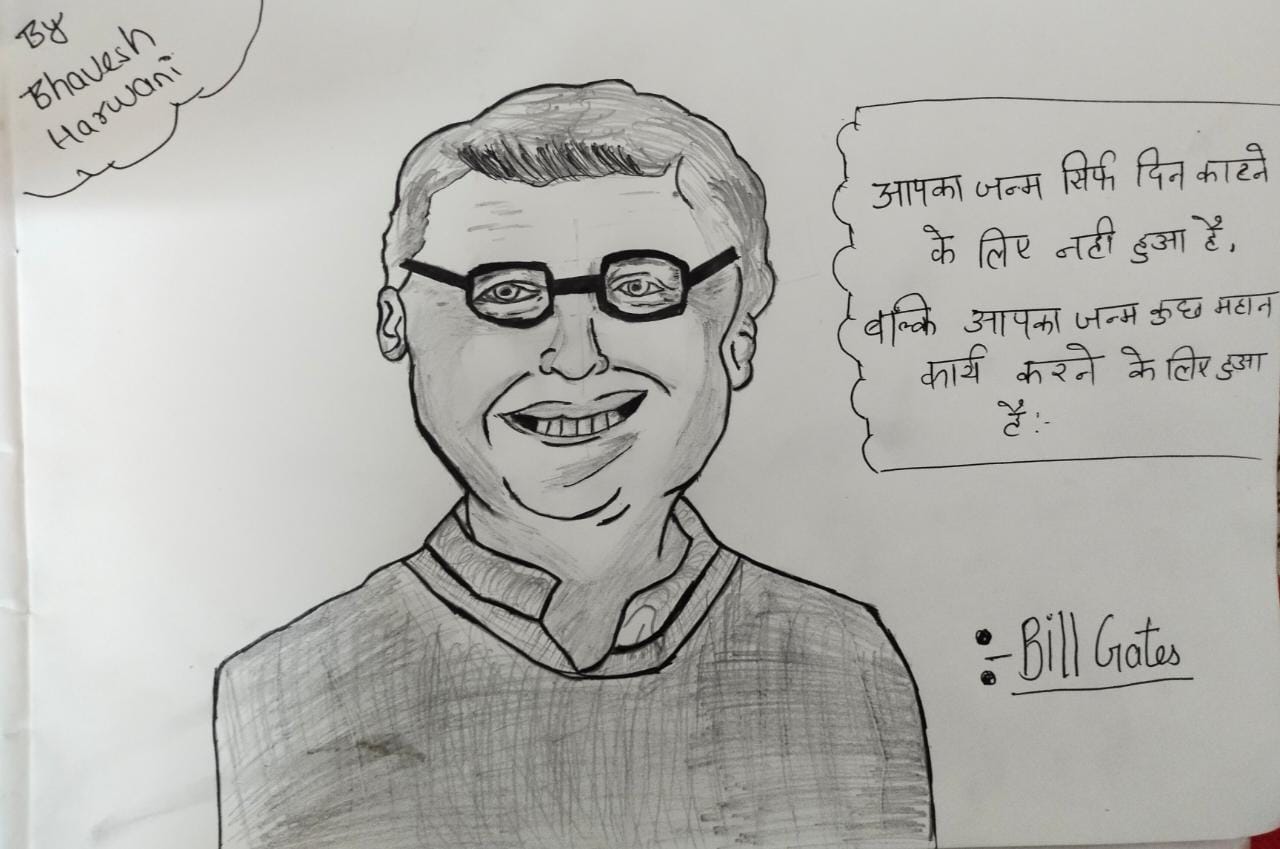 By
Bhavesh
Harwani
आपका जन्म सिर्फ दिन काटने
के लिए नही हुआ है,
बल्कि आपका जन्म कुछ महान
कार्य करने के लिए हुआ
है :-
:- Bill Gates